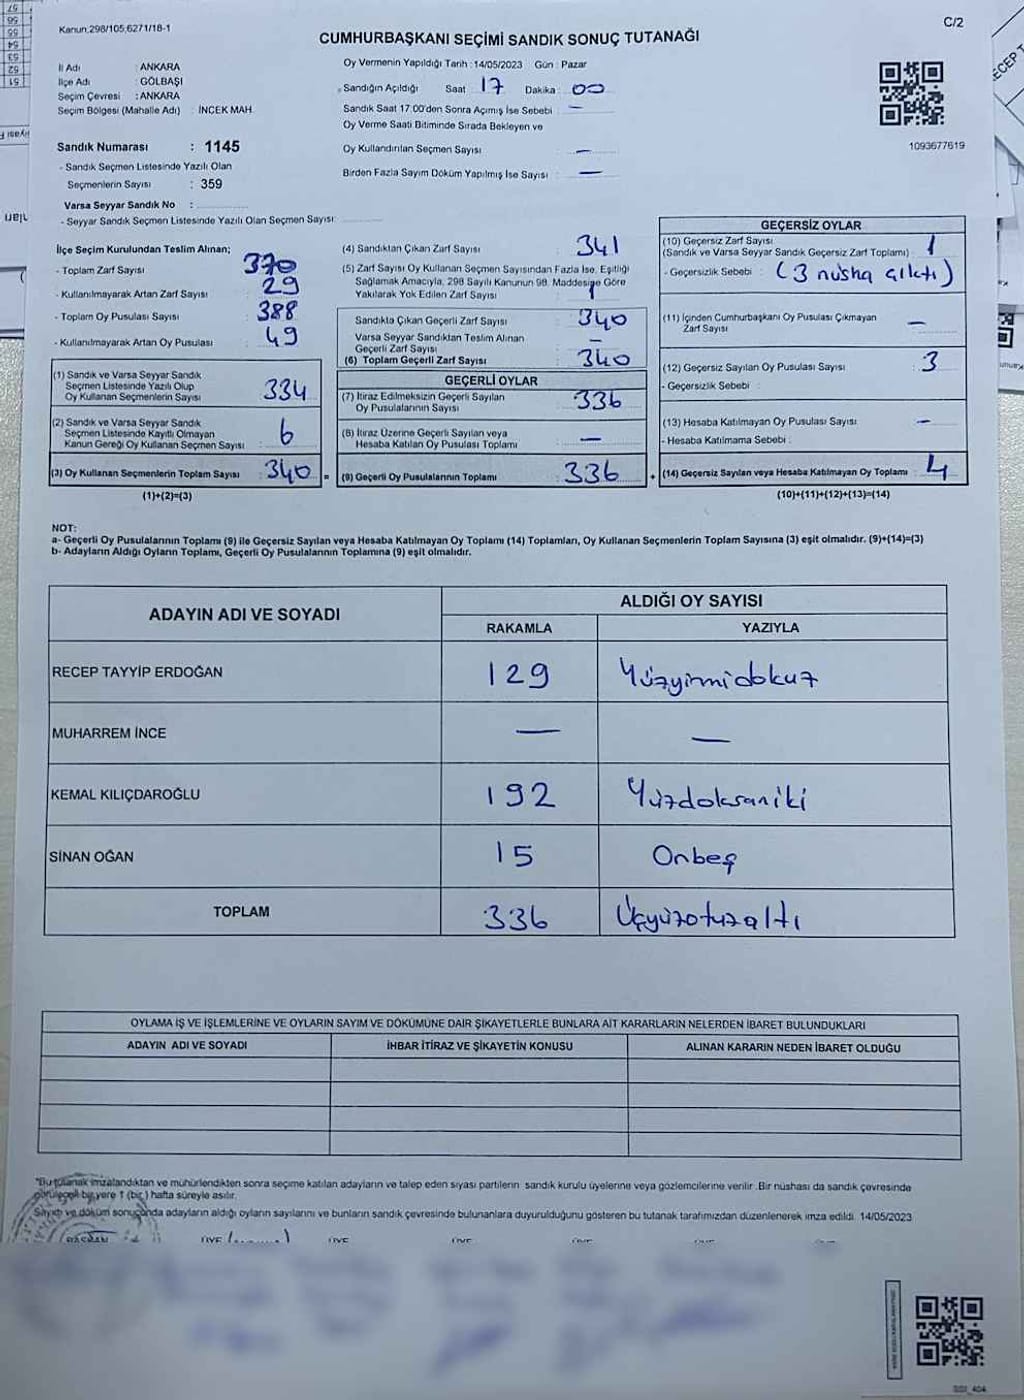 Kanun,298/105,6271/18-1
C/2
CUMHURBAŞKANI SEÇİMİ SANDIK SONUÇ TUTANAĞI
İl Adı : ANKARA
İlçe Adı : GÖLBAŞI
Seçim Çevresi : ANKARA
Seçim Bölgesi (Mahalle Adı) : İNCEK MAH.
Sandık Numarası : 1145
- Sandık Seçmen Listesinde Yazılı Olan
Seçmenlerin Sayısı : 359
Varsa Seyyar Sandık No :
- Seyyar Sandık Seçmen Listesinde Yazılı Olan Seçmen Sayısı:
Oy Vermenin Yapıldığı Tarih :14/05/2023 Gün : Pazar
Sandığın Açıldığı Saat 17 Dakika : 00
Sandık Saat 17:00'den Sonra Açımış İse Sebebi : —
Oy Verme Saati Bitiminde Sırada Bekleyen ve
Oy Kullandırılan Seçmen Sayısı : —
Birden Fazla Sayım Döküm Yapılmış İse Sayısı : —
1093677619
İlçe Seçim Kurulundan Teslim Alınan;
- Toplam Zarf Sayısı 370
- Kullanılmayarak Artan Zarf Sayısı : 29
- Toplam Oy Pusulası Sayısı : 388
- Kullanılmayarak Artan Oy Pusulası : 49
(1) Sandık ve Varsa Seyyar Sandık
Seçmen Listesinde Yazılı Olup
Oy Kullanan Seçmenlerin Sayısı : 334
(2) Sandık ve Varsa Seyyar Sandık
Seçmen Listesinde Kayıtlı Olmayan
Kanun Gereği Oy Kullanan Seçmen Sayısı : 6
(3) Oy Kullanan Seçmenlerin Toplam Sayısı : 340 =
(1)+(2)=(3)
(4) Sandıktan Çıkan Zarf Sayısı : 341
(5) Zarf Sayısı Oy Kullanan Seçmen Sayısından Fazla İse, Eşitliği
Sağlamak Amacıyla, 298 Sayılı Kanunun 98. Maddesine Göre
Yakılarak Yok Edilen Zarf Sayısı : 1
Sandıkta Çıkan Geçerli Zarf Sayısı : 340
Varsa Seyyar Sandıktan Teslim Alınan
Geçerli Zarf Sayısı : —
(6) Toplam Geçerli Zarf Sayısı : 340
GEÇERLİ OYLAR
(7) İtiraz Edilmeksizin Geçerli Sayılan
Oy Pusulalarının Sayısı : 336
(8) İtiraz Üzerine Geçerli Sayılan veya
Hesaba Katılan Oy Pusulası Toplamı : —
(9) Geçerli Oy Pusulalarının Toplamı : 336 +
GEÇERSİZ OYLAR
(10) Geçersiz Zarf Sayısı
(Sandık ve Varsa Seyyar Sandık Geçersiz Zarf Toplamı) : 1
- Geçersizlik Sebebi : (3 nüsha çıktı)
(11) İçinden Cumhurbaşkanı Oy Pusulası Çıkmayan
Zarf Sayısı —
(12) Geçersiz Sayılan Oy Pusulası Sayısı : 3
- Geçersizlik Sebebi :
(13) Hesaba Katılmayan Oy Pusulası Sayısı : —
- Hesaba Katılmama Sebebi :
(14) Geçersiz Sayılan veya Hesaba Katılmayan Oy Toplamı : 4
(10)+(11)+(12)+(13)=(14)
NOT:
a- Geçerli Oy Pusulalarının Toplamı (9) ile Geçersiz Sayılan veya Hesaba Katılmayan Oy Toplamı (14) Toplamları, Oy Kullanan Seçmenlerin Toplam Sayısına (3) eşit olmalıdır. (9)+(14)=(3)
b- Adayların Aldığı Oyların Toplamı, Geçerli Oy Pusulalarının Toplamına (9) eşit olmalıdır.
ADAYIN ADI VE SOYADI
ALDIĞI OY SAYISI
RAKAMLA YAZIYLA
RECEP TAYYİP ERDOĞAN 129 Yüzyirmidokuz
MUHARREM İNCE — —
KEMAL KILIÇDAROĞLU 192 Yüzdoksaniki
SİNAN OĞAN 15 Onbeş
TOPLAM 336 Üçyüzotuzaltı
OYLAMA İŞ VE İŞLEMLERİNE VE OYLARIN SAYIM VE DÖKÜMÜNE DAİR ŞİKAYETLERLE BUNLARA AİT KARARLARIN NELERDEN İBARET BULUNDUKLARI
ADAYIN ADI VE SOYADI İHBAR İTİRAZ VE ŞİKAYETİN KONUSU ALINAN KARARIN NEDEN İBARET OLDUĞU
*Bu tutanak imzalandıktan ve mühürlendikten sonra seçime katılan adayların ve talep eden siyasi partilerin sandık kurulu üyelerine veya gözlemcilerine verilir. Bir nüshası da sandık çevresinde
görülecek bir yere 1 (bir) hafta süreyle asılır.
Sayım ve döküm sonucunda adayların aldığı oyların sayılarını ve bunların sandık çevresinde bulunanlara duyurulduğunu gösteren bu tutanak tarafımızdan düzenlenerek imza edildi. 14/05/2023
BAŞKAN ÜYE ÜYE ÜYE ÜYE ÜYE